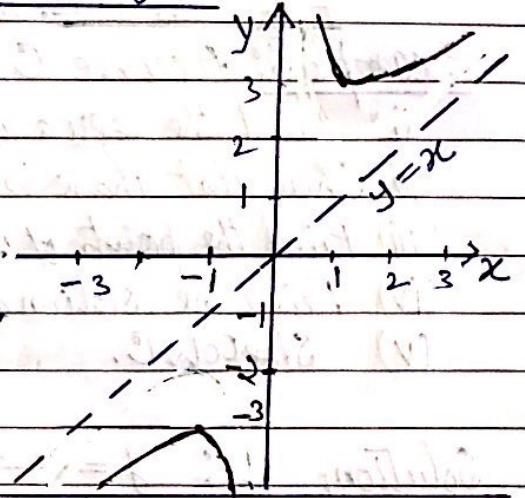 y
3
2
1
y=x
-3 -1 1 2 3 x
-1
-2
-3